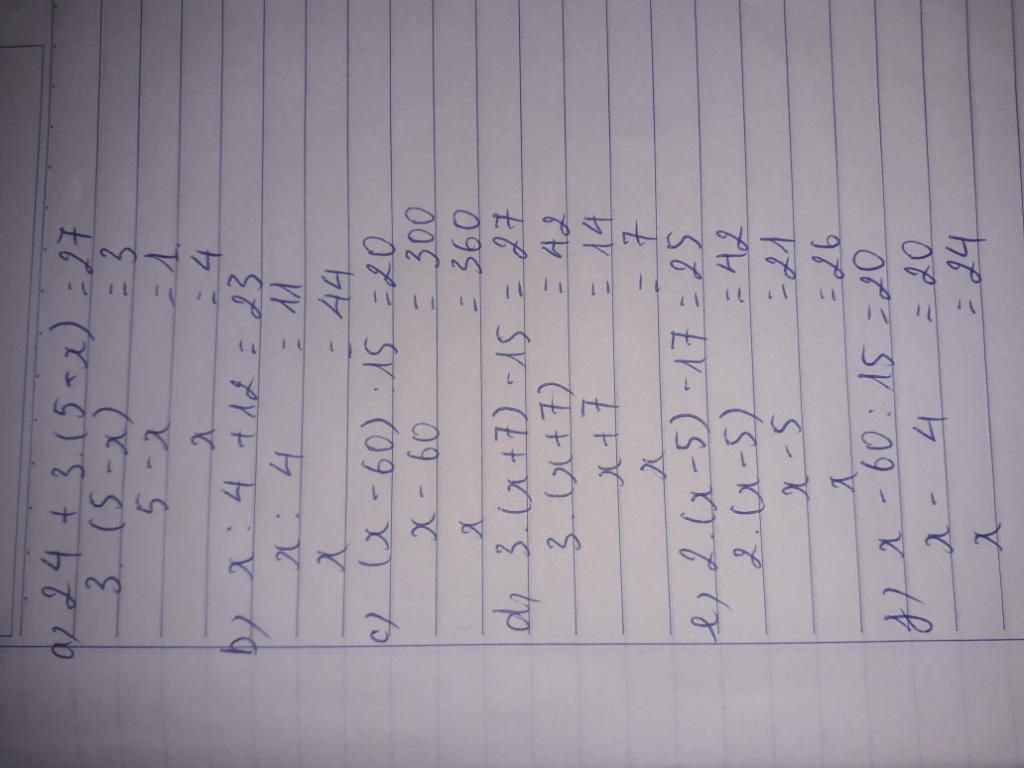 a) 24 + 3.(5-x) = 27
3.(5-x) = 3
5-x = 1
x = 4
b) x : 4 + 12 = 23
x : 4 = 11
x = 44
c) (x - 60) . 15 = 20
x - 60 = 300
x = 360
d) 3.(x+7) - 15 = 27
3.(x+7) = 42
x+7 = 14
x = 7
e) 2.(x-5) - 17 = 25
2.(x-5) = 42
x-5 = 21
x = 26
f) x - 60 : 15 = 20
x - 4 = 20
x = 24